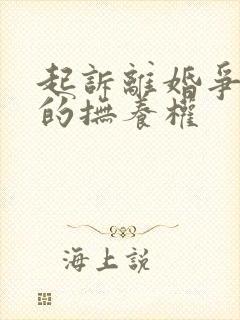 起訴離婚爭
的撫養權
海上說